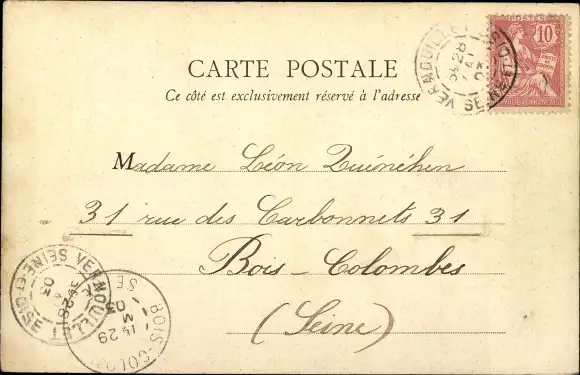 CARTE POSTALE
Ce côté est exclusivement réservé à l'adresse
POSTES
10
VERNOUILLET SEINE-ET-OISE
28
03
Madame Léon Quénéhen
31 rue des Carbonnets 31
Bois-Colombes
(Seine)
VERNOUILLET SEINE-ET-OISE
28
03
BOIS-COLO
SE
29
M
03